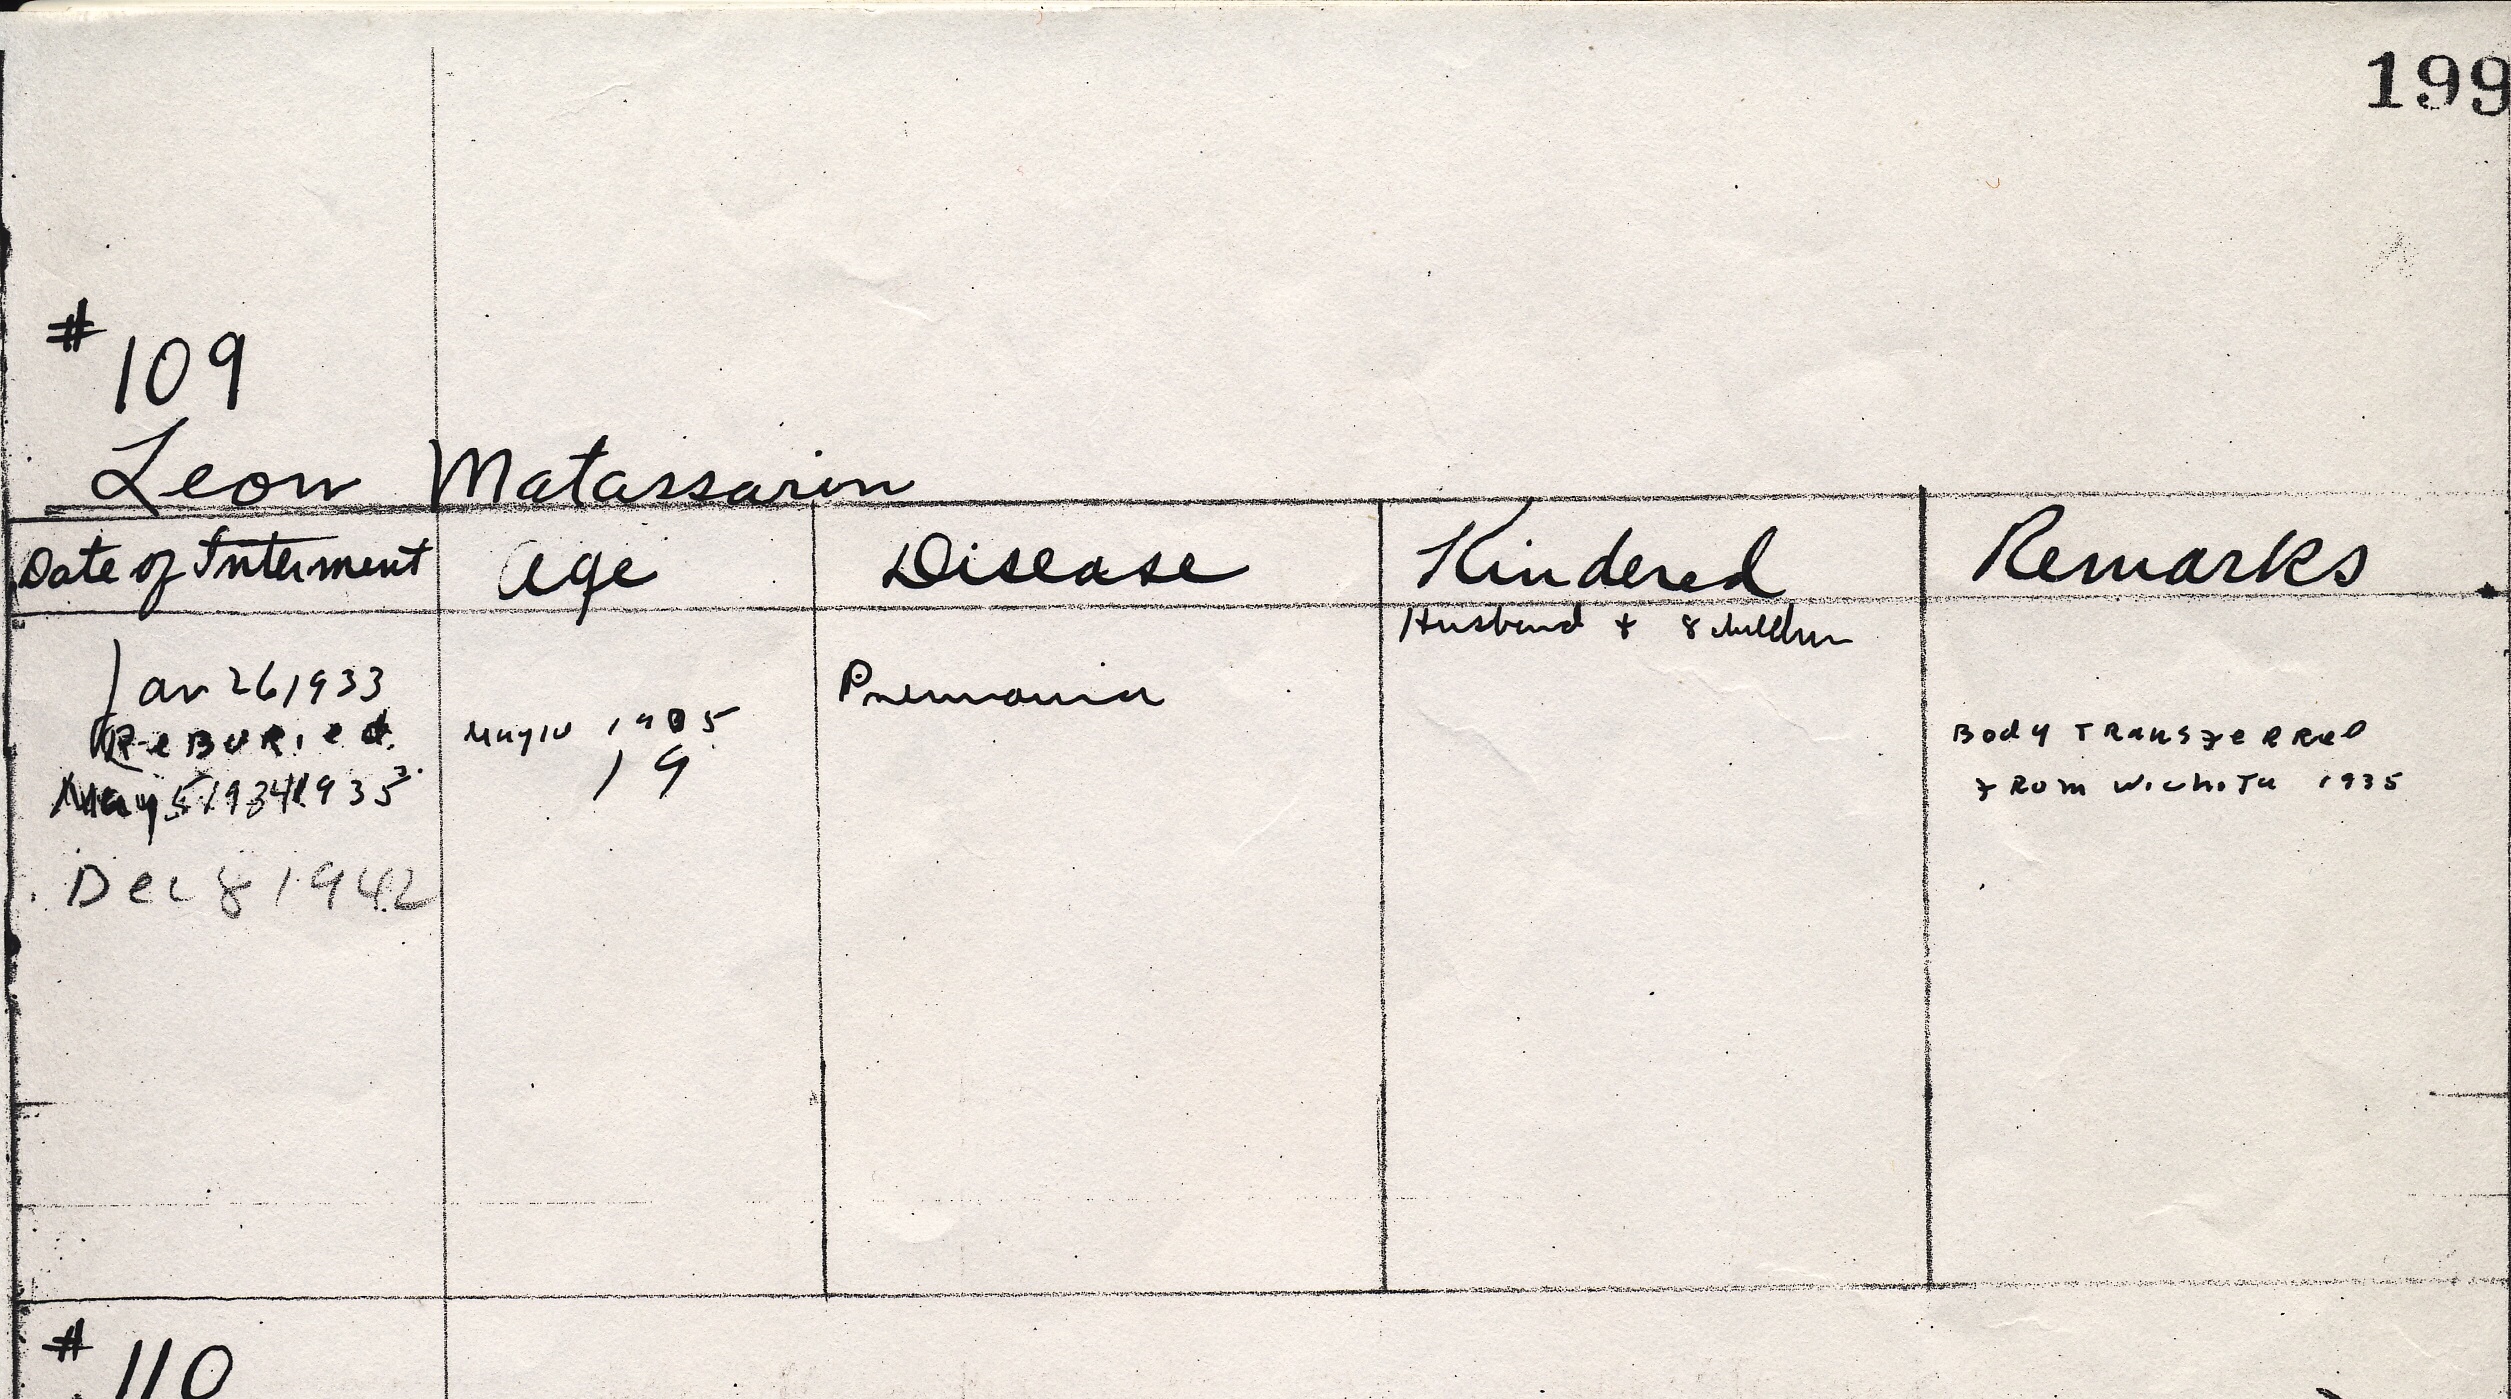 199
# 109
Leon Matassarin
Date of Interment Age Disease Kindered Remarks
Husband + 8 children
Jan 26 1933 Pneumonia
ReBuried May 10 1905 Body Transferred
May 5 1935 19 From Wichita 1935
Dec 8 1942
# 110